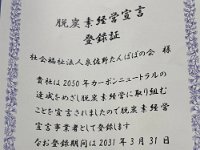 脱炭素経営宣言
登録証
社会福祉法人泉佐野たんぽぽの会 様
貴社は2050年カーボンニュートラルの
達成をめざし脱炭素経営に取り組む
ことを宣言されましたので脱炭素経営
宣言事業者として登録します
なお登録期間は2031年3月31日